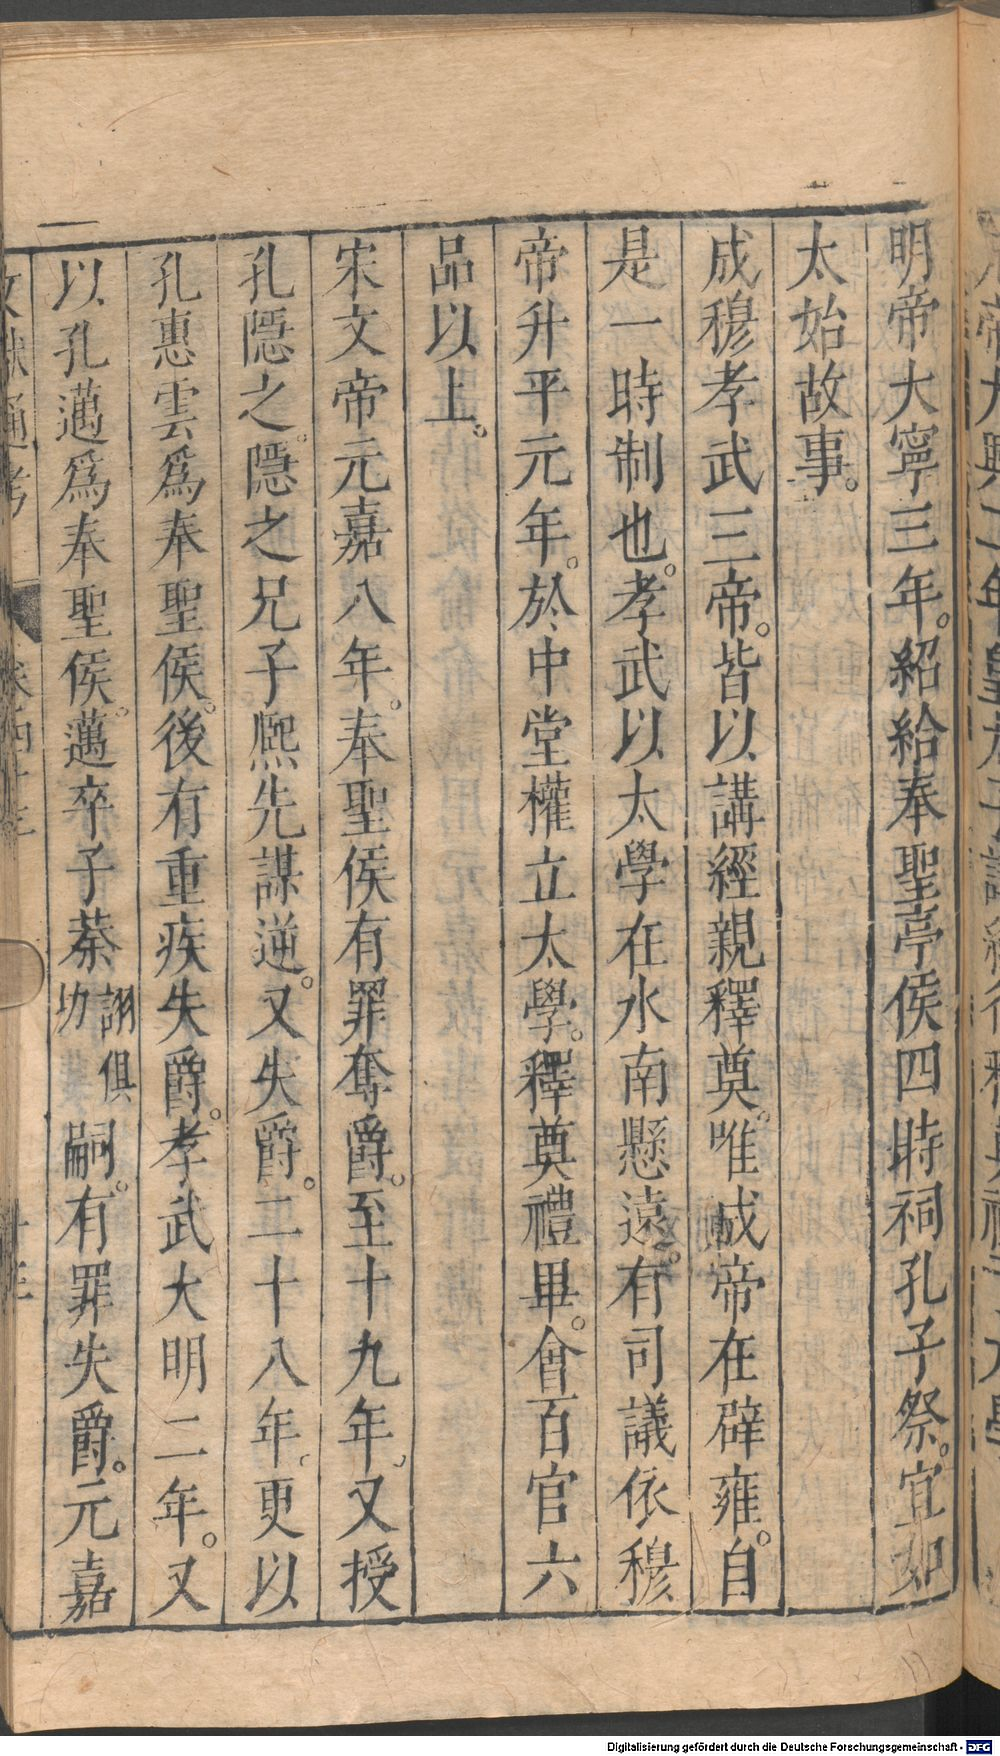 明帝大寧三年。紹給奉聖亭侯四時祠孔子祭。宜如
太始故事。
成穆孝武三帝。皆以講經親釋奠。唯成帝在辟雍。自
是一時制也。孝武以太學在水南懸遠。有司議依穆
帝升平元年。於中堂權立太學。釋奠禮畢。會百官六
品以上。
宋文帝元嘉八年。奉聖侯有罪奪爵。至十九年。又授
孔隱之。隱之兄子熈先謀逆。又失爵。二十八年。更以
孔惠雲爲奉聖侯。後有重疾失爵。孝武大明二年。又
以孔邁爲奉聖侯。邁卒子莽詡俱切嗣。有罪失爵。元嘉
文獻通考
Digitalisierung gefördert durch die Deutsche Forschungsgemeinschaft - DFG